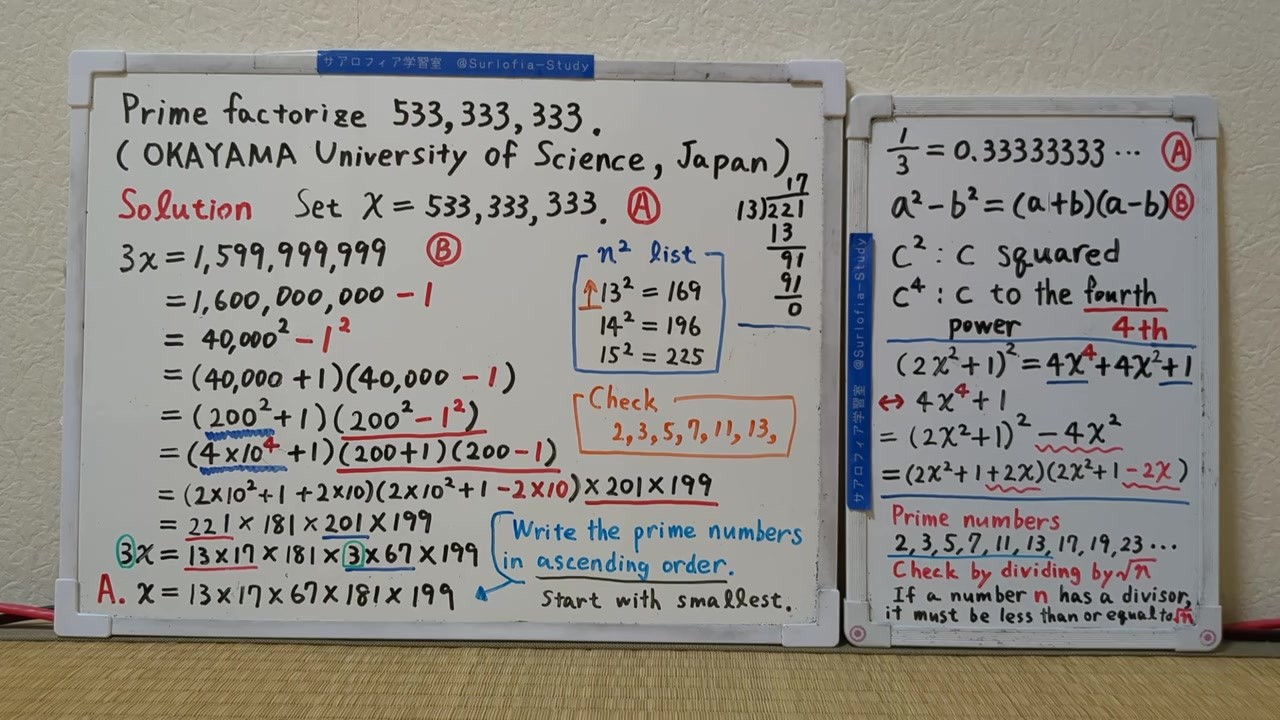 サアロフィア学習室 @Surlofia-Study
Prime factorize 533,333,333.
(OKAYAMA University of Science, Japan)
Solution Set x = 533,333,333. Ⓐ
3x = 1,599,999,999 Ⓑ
= 1,600,000,000 - 1
= 40,000² - 1²
= (40,000 + 1)(40,000 - 1)
= (200² + 1)(200² - 1²)
= (4×10⁴ + 1)(200+1)(200-1)
= (2×10²+1+2×10)(2×10²+1-2×10)×201×199
= 221×181×201×199
3x = 13×17×181×3×67×199
A. x = 13×17×67×181×199
17
13)221
13
91
91
0
n² list
↑13² = 169
14² = 196
15² = 225
Check
2,3,5,7,11,13,
Write the prime numbers
in ascending order.
Start with smallest.
サアロフィア学習室 @Surlofia-Study
1/3 = 0.33333333… Ⓐ
a²-b²=(a+b)(a-b)Ⓑ
C²: C squared
C⁴: C to the fourth
power 4th
(2x²+1)²=4x⁴+4x²+1
↔ 4x⁴+1
= (2x²+1)²-4x²
=(2x²+1+2x)(2x²+1-2x)
Prime numbers
2,3,5,7,11,13,17,19,23…
Check by dividing by √n
If a number n has a divisor,
it must be less than or equal to √n